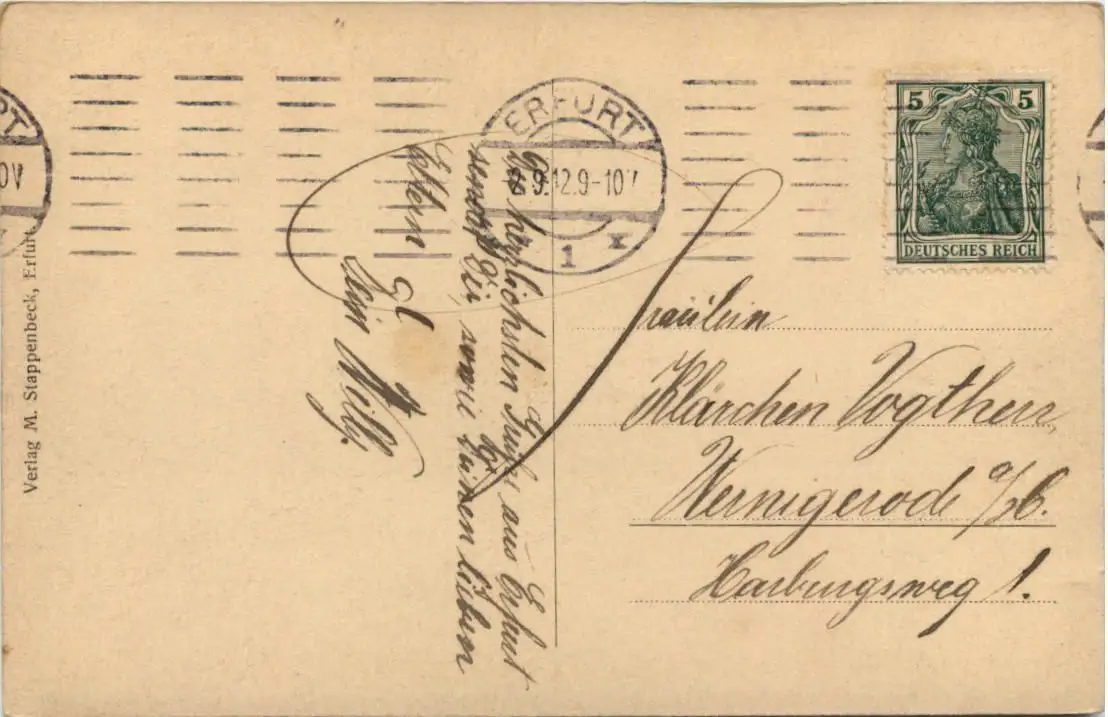 ERFURT
2.9.12.9-10V
1 x
5 5
DEUTSCHES REICH
RT
OV
Verlag M. Stappenbeck, Erfurt
herzlichsten Grüße aus Erfurt
sendet Dir, sowie Deinen lieben
Eltern
Dein Willy.
Fräulein
Klärchen Vogtherr
Wernigerode a/H.
Harburgsweg 1.